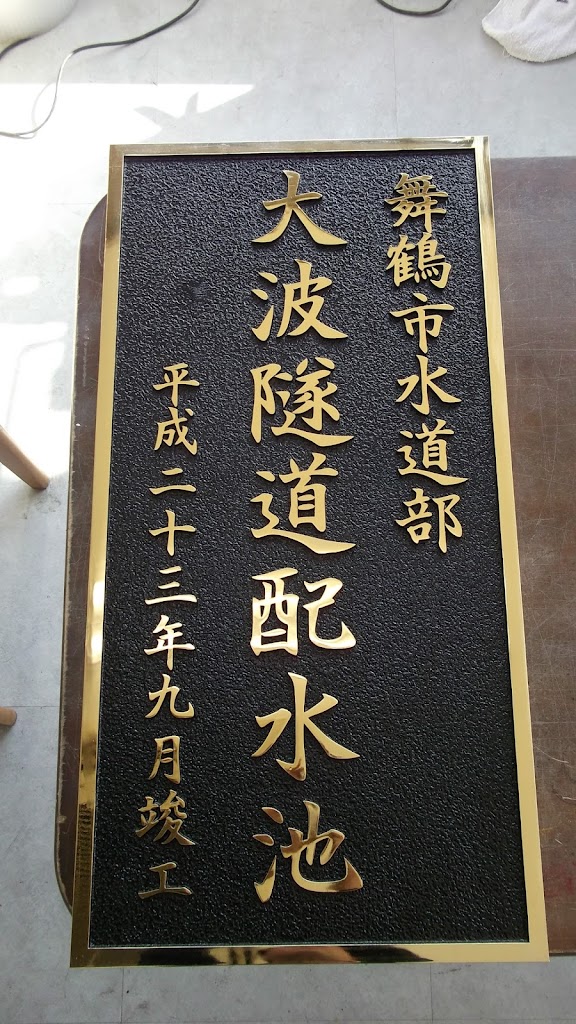 舞鶴市水道部
大波隧道配水池
平成二十三年九月竣工